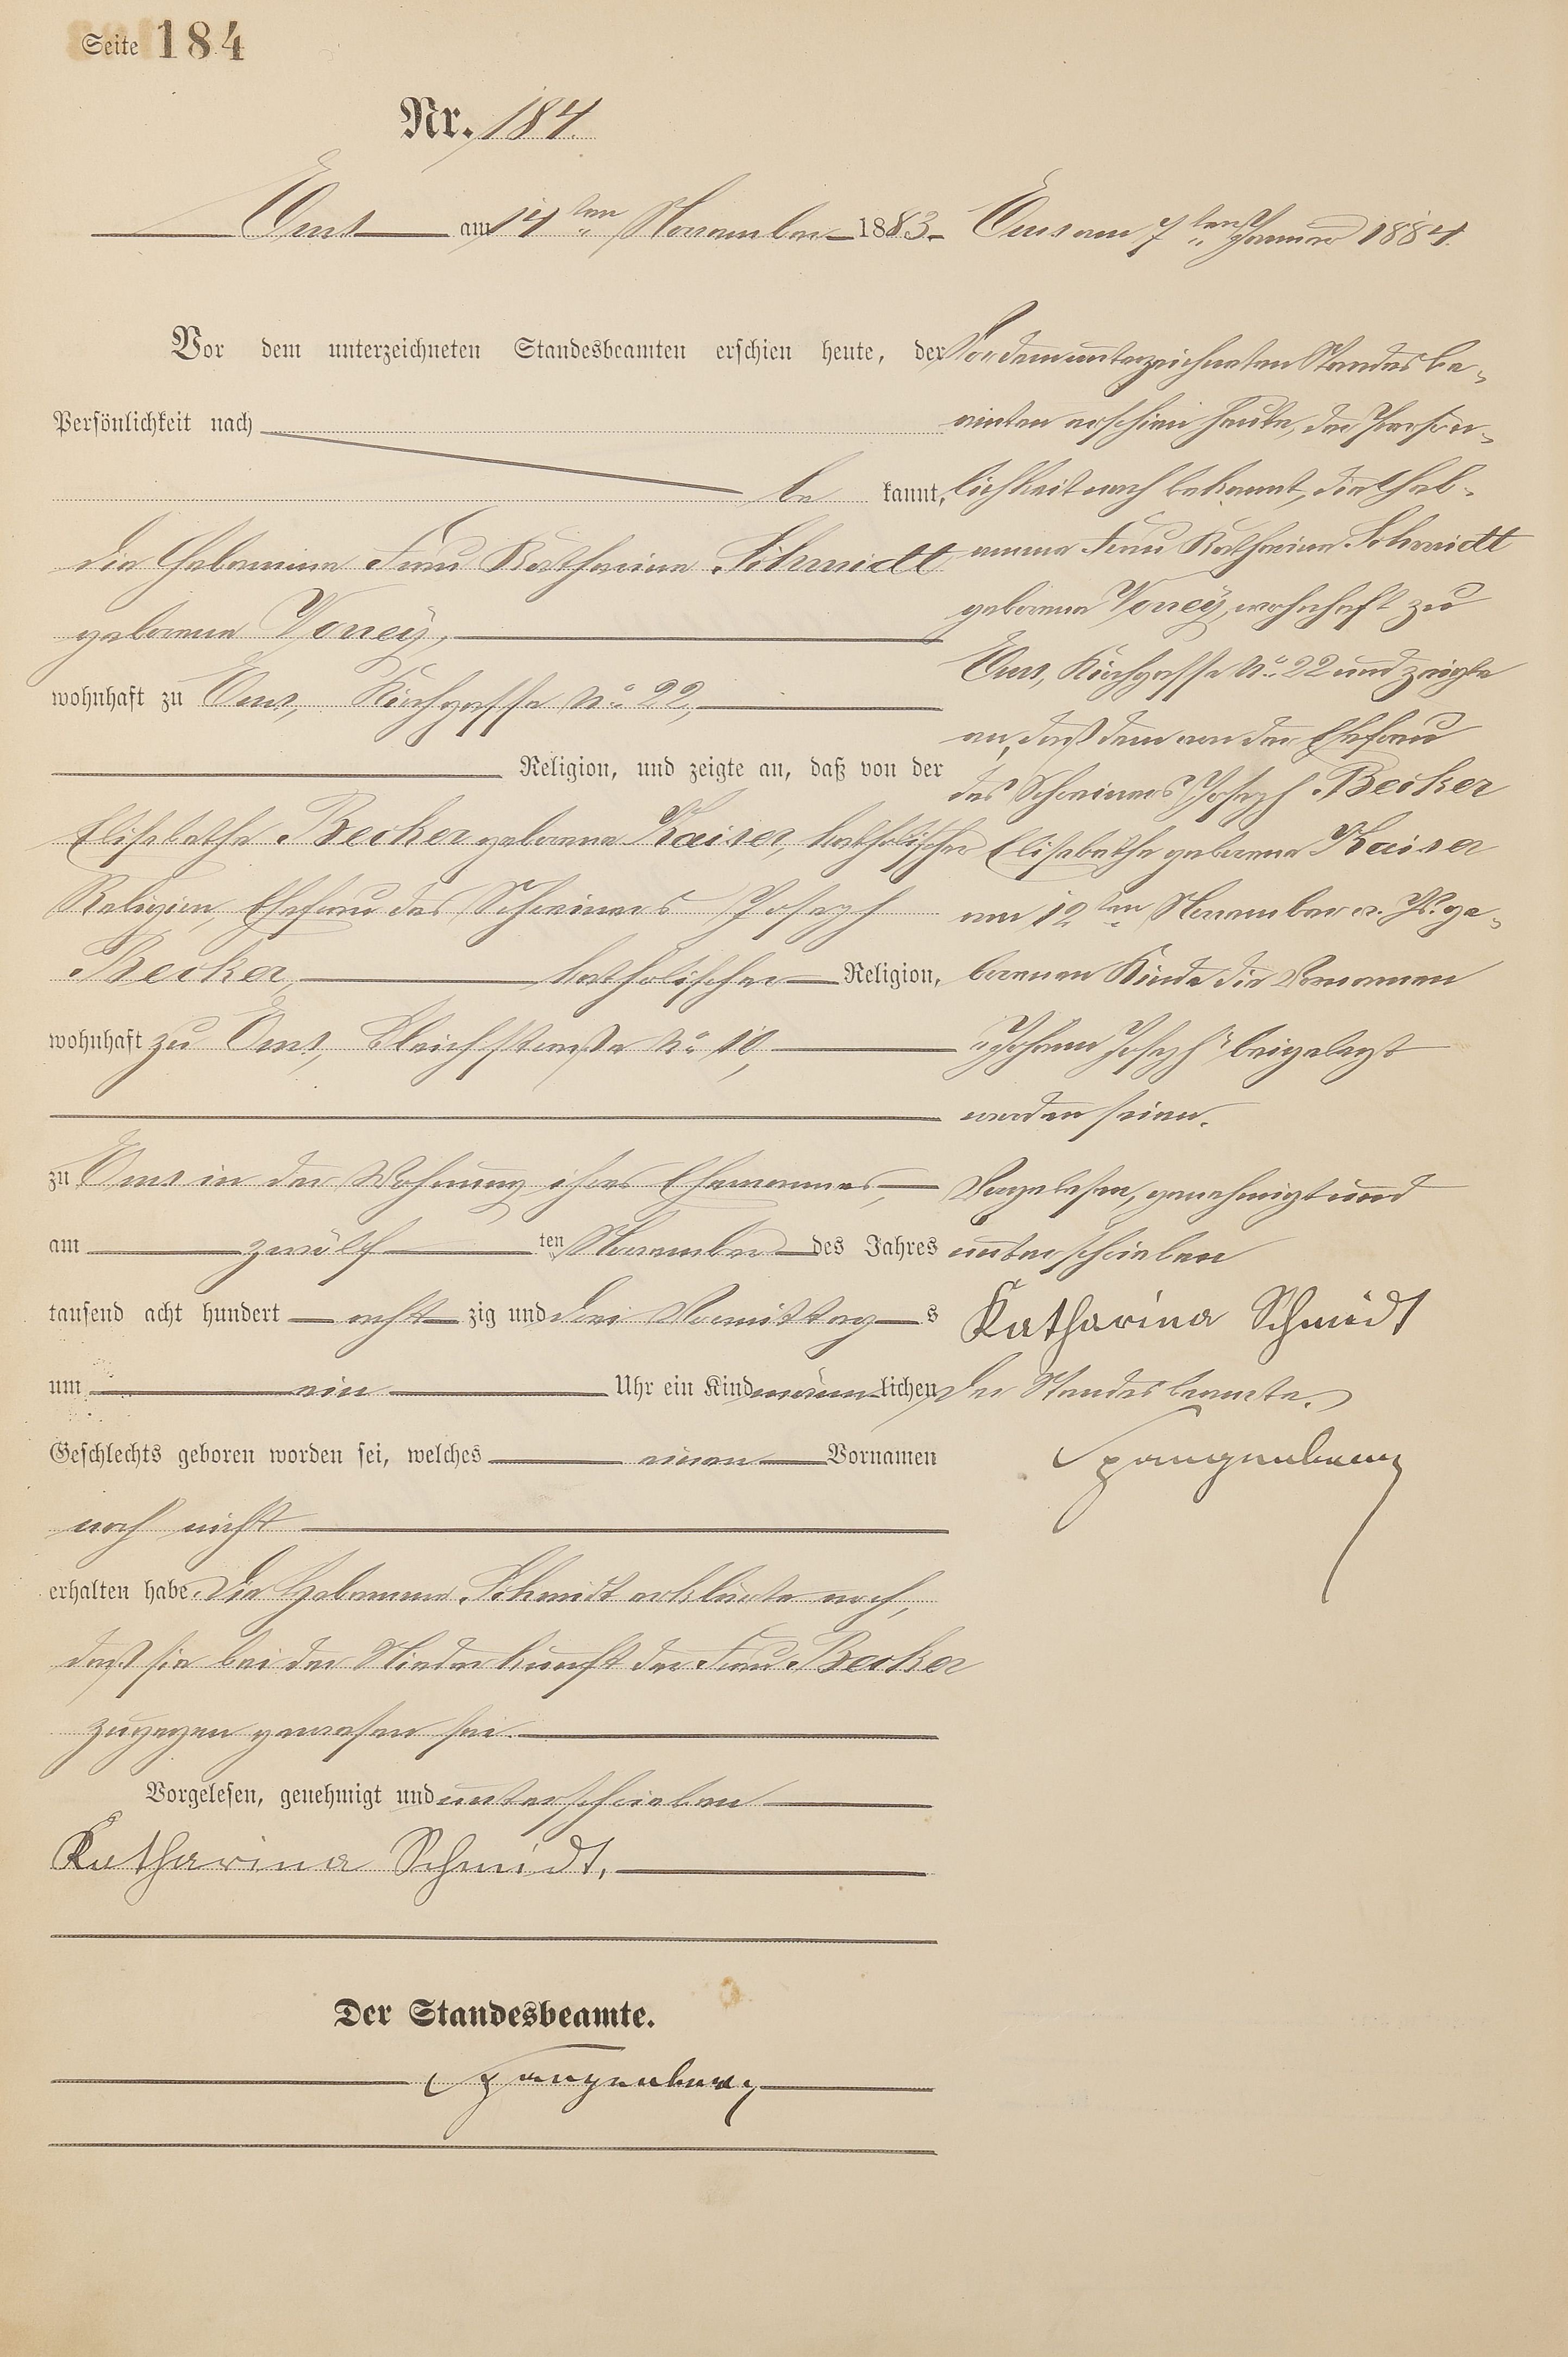 Seite 184
Nr. 184.
Ems am 14ten November 1883.
Vor dem unterzeichneten Standesbeamten erschien heute, der
Persönlichkeit nach
be kannt,
die Hebamme Frau Katharina Schmidt
geborene Vorreÿ,
wohnhaft zu Ems, Kirchgasse No 22,
Religion, und zeigte an, daß von der
Elisabethe Becker geborene Kaiser, katholischer
Religion, Ehefrau des Schreiners Joseph
Becker katholischer Religion,
wohnhaft zu Ems, Bleichstraße No 10,
zu Ems in der Wohnung ihres Ehemannes,
am zwölf ten November des Jahres
tausend acht hundert acht zig und drei Vormittag s
um ein Uhr ein Kind männ lichen
Geschlechts geboren worden sei, welches einen Vornamen
noch nicht
erhalten habe. Die Hebamme Schmidt erklärte noch,
daß sie bei der Niederkunft der Frau Becker
zugegen gewesen sei.
Vorgelesen, genehmigt und unterschrieben
Katharina Schmidt.
Der Standesbeamte.
Spangenberg
Ems am 7ten Januar 1884.
Vor dem unterzeichneten Standesbe-
amten erschien heute, der Persön-
lichkeit nach bekannt, die Heb-
amme Frau Katharina Schmidt
geborene Vorreÿ, wohnhaft zu
Ems, Kirchgasse No 22 und zeigte
an, daß dem von der Ehefrau
des Schreiners Joseph Becker
Elisabethe geborene Kaiser
am 12ten November v. Js. ge-
borenen Kinde die Vornamen
"Johann Joseph" beigelegt
worden seien.
Vorgelesen, genehmigt und
unterschrieben
Katharina Schmidt
Der Standesbeamte.
Spangenberg